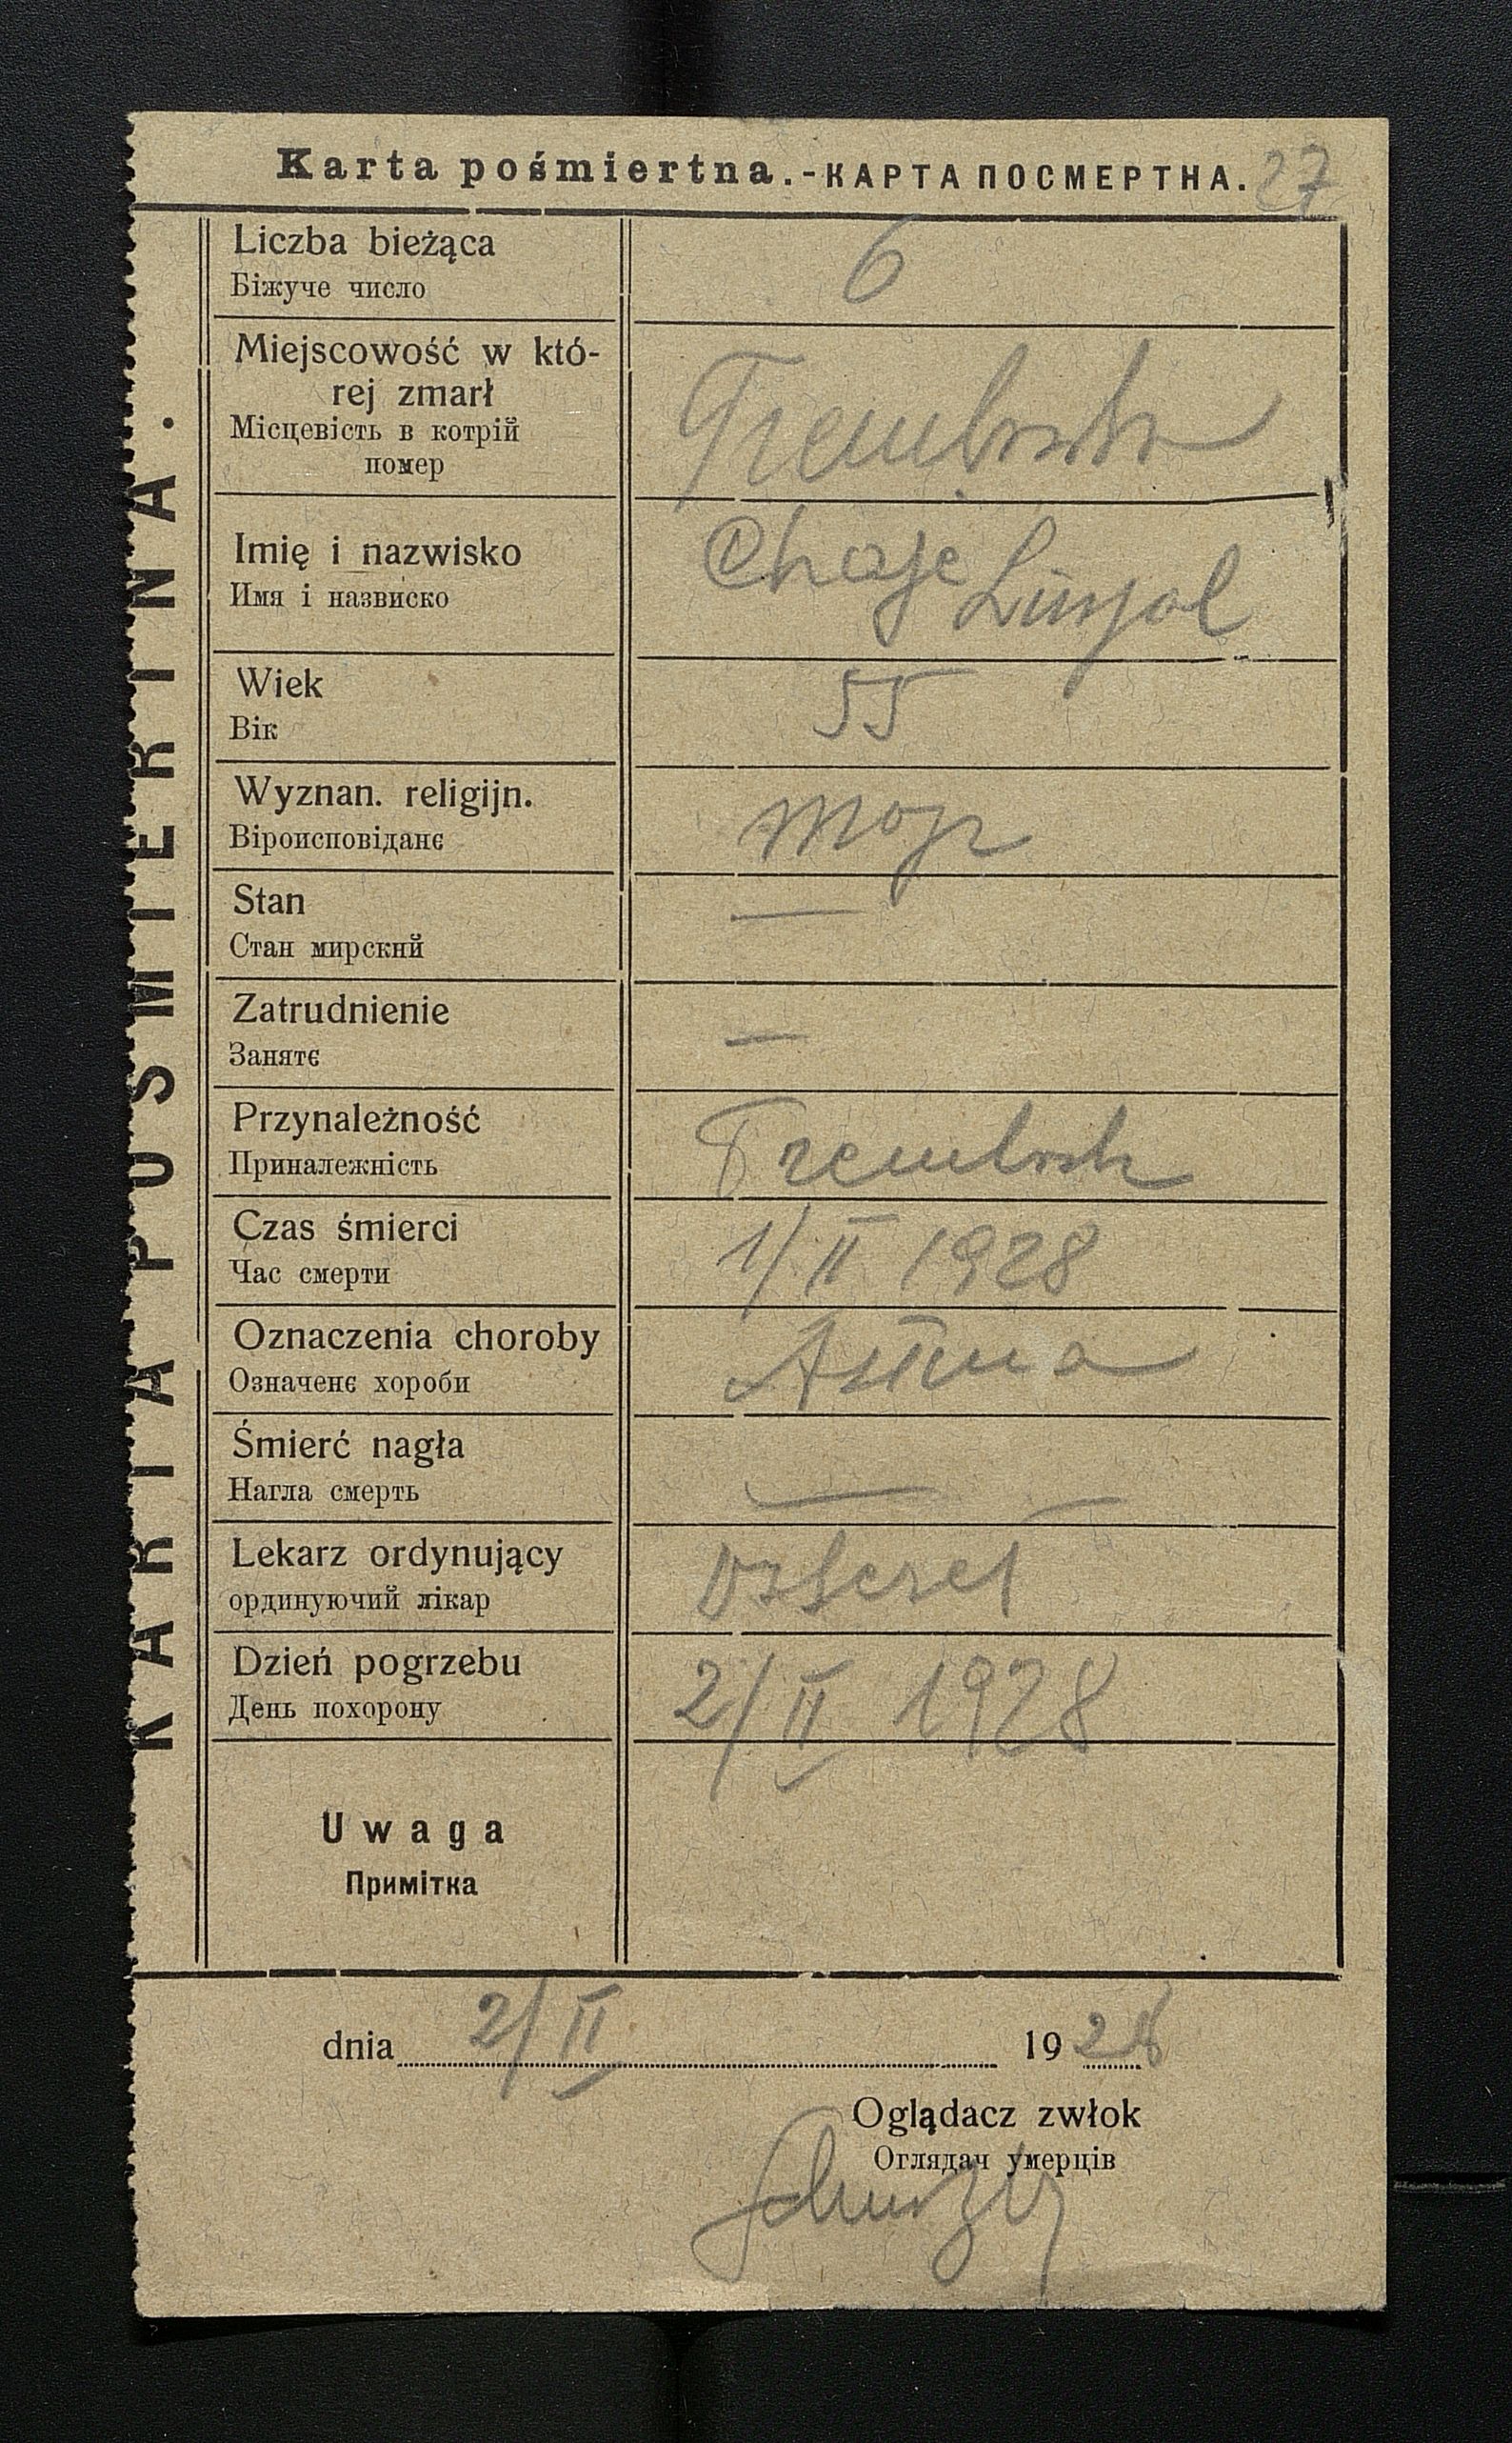 Karta pośmiertna.-КАРТА ПОСМЕРТНА. 27
KARTA POŚMIERTNA.
Liczba bieżąca 6
Біжуче число
Miejscowość w któ-
rej zmarł
Місцевість в котрій
помер
Imię i nazwisko Chaje
Имя і назвиско
Wiek 55
Вік
Wyznan. religijn. mojz
Віроисповіданє
Stan —
Стан мирский
Zatrudnienie —
Занятє
Przynależność
Приналежність
Czas śmierci 1/II 1928
Час смерти
Oznaczenia choroby Astma
Означенє хороби
Śmierć nagła —
Нагла смерть
Lekarz ordynujący
ординуючий лікар
Dzień pogrzebu 2/II 1928
День похорону
Uwaga
Примітка
dnia 2/II 1928
Oglądacz zwłok
Оглядач умерців